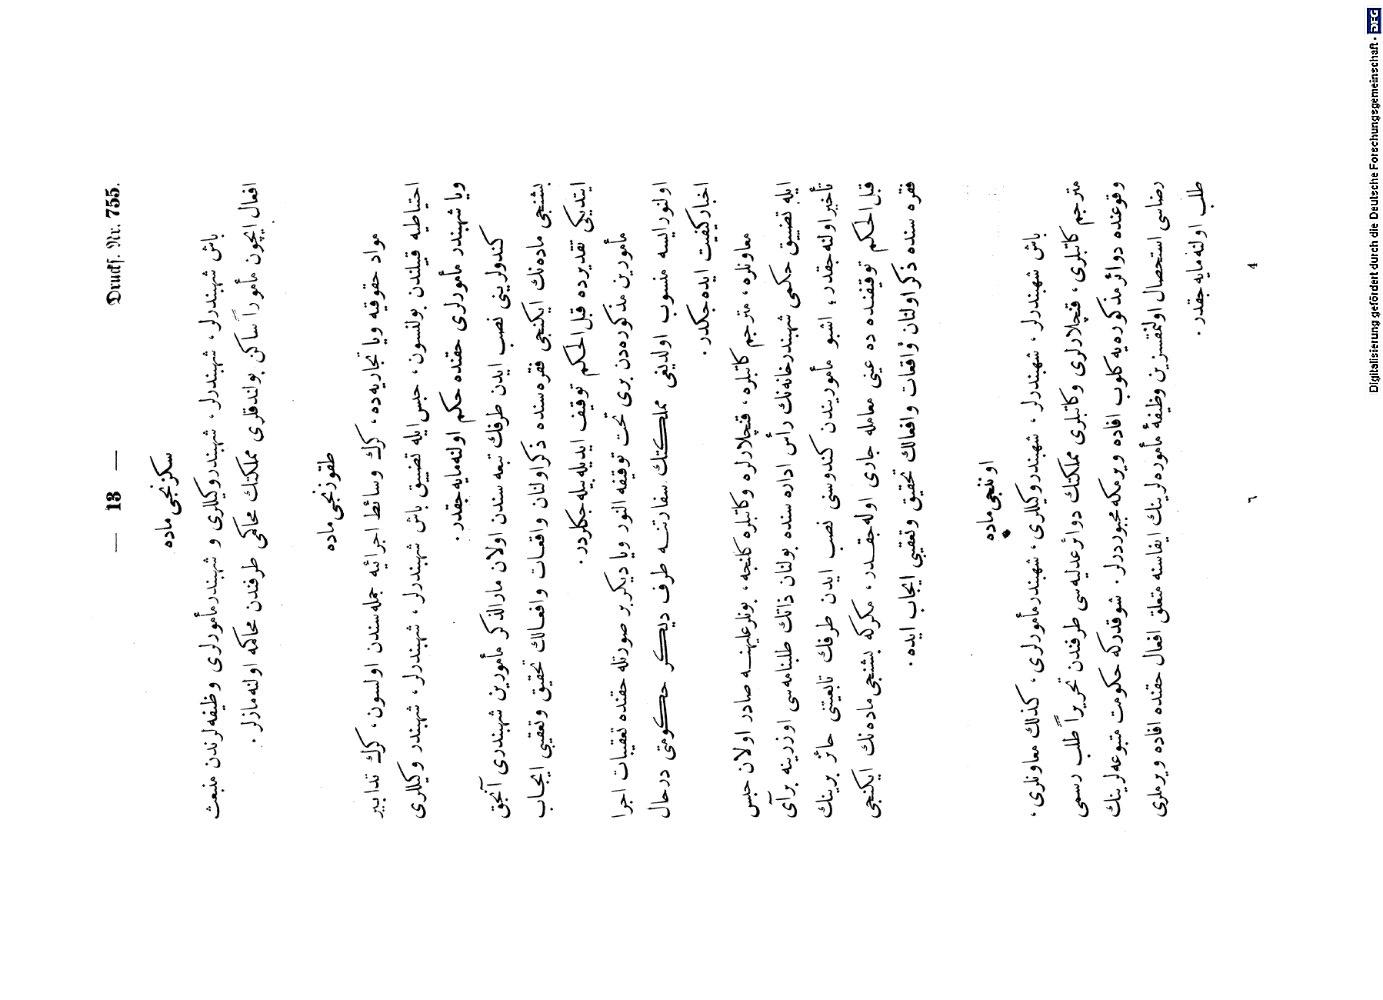 — 18 — Druckf. Nr. 755.
سكزنجی ماده
باش شهبندرلر، شهبندرلر، شهبندر وكیللری و شهبندر مأمورلری وظیفه لرندن منبعث
افعال ایچون مأموراً ساكن بولندقلری مملكتك محاكمی طرفندن محاكمه اولنه مازلر.
طقوزنجی ماده
مواد حقوقیه ویا تجاریه ده، كرك وسائط اجرائیه جمله سندن اولسون، كرك تدابیر
احتیاطیه قبیلندن بولنسون، حبس ایله تضییق باش شهبندرلر، شهبندرلر، شهبندر وكیللری
ویا شهبندر مأمورلری حقنده حكم اولنه مایه جقدر.
كندولرینی نصب ایدن طرفك تبعه سندن اولان مارالذكر مأمورین شهبندری آنجق
بشنجی ماده نك ایكنجی فقره سنده ذكر اولنان واقعات وافعالك تحقیق وتعقیبی ایجاب
ایتدیكی تقدیرده قبل الحكم توقیف ایدیله بیله جكلردر.
مأمورین مذكوره دن بری تحت توقیفه النور ویا دیكر بر صورتله حقنده تعقیبات اجرا
اولنور ایسه منسوب اولدیغی مملكتك سفارتنه طرف دیكر حكومتی درحال
اخبار كیفیت ایده جكدر.
معاونلره، مترجم كاتبلره، قنچلارلره وكاتبلره كلنجه، بونلر علیهنه صادر اولان حبس
ایله تضییق حكمی شهبندرخانه نك رأس اداره سنده بولنان ذاتك طلبنامه سی اوزرینه بر آی
تأخیر اولنه جقدر، اشبو مأموریندن كندوسنی نصب ایدن طرفك تابعیتنی حائز برینك
قبل الحكم توقیفنده ده عینی معامله جاری اوله جقدر، مكركه بشنجی ماده نك ایكنجی
فقره سنده ذكر اولنان واقعات وافعالك تحقیق وتعقیبی ایجاب ایده.
اوننجی ماده
باش شهبندرلر، شهبندرلر، شهبندر وكیللری، شهبندر مأمورلری، كذلك معاونلری،
مترجم كاتبلری، قنچلارلری وكاتبلری مملكتك دوائر عدلیه سی طرفندن تحریراً طلب رسمی
وقوعنده دوائر مذكوره یه كلوب افاده ویرمكه مجبوردرلر. شوقدركه حكومت متبوعه لرینك
رضاسی استحصال اولنمقسزین وظیفهٔ مأموره لرینك ایفاسنه متعلق افعال حقنده افاده ویرملری
طلب اولنه مایه جقدر.
٦ 4
Digitalisierung gefördert durch die Deutsche Forschungsgemeinschaft · DFG